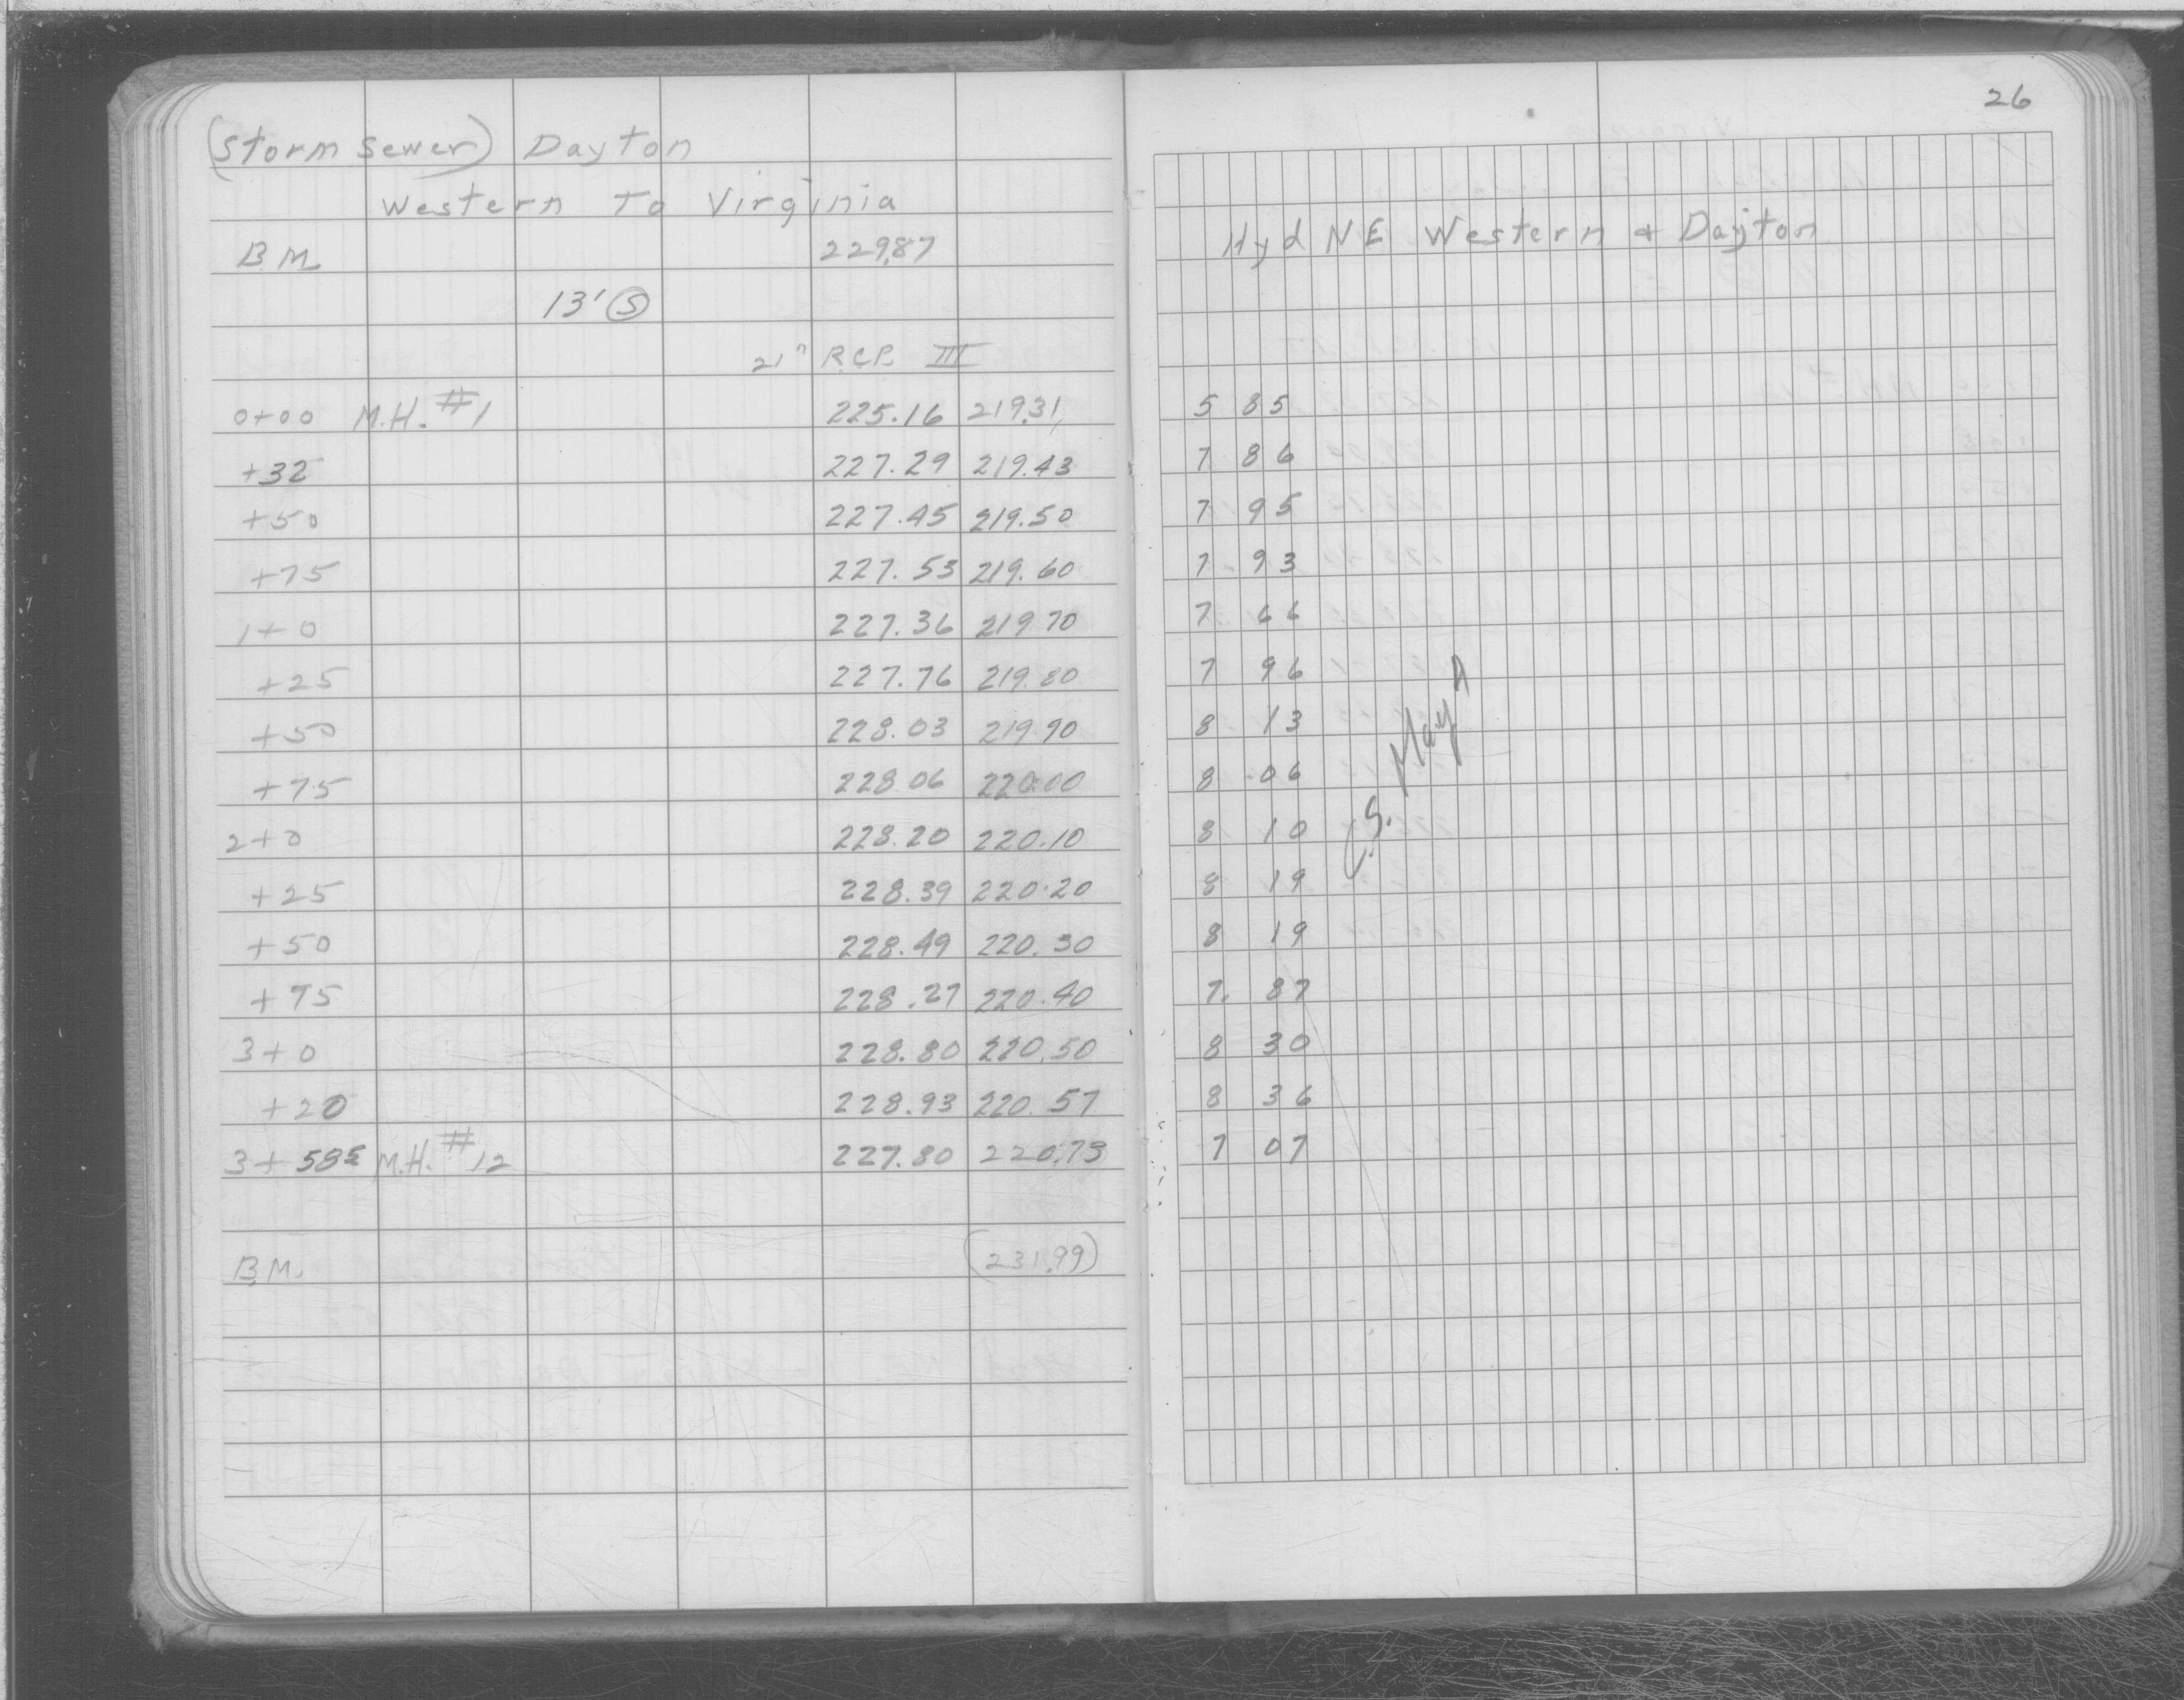 (Storm Sewer) Dayton
Western To Virginia
B.M. 229.87
13' S
21" R.C.P. III
0+00 M.H. #1 225.16 219.31
+32 227.29 219.43
+50 227.45 219.50
+75 227.53 219.60
1+0 227.36 219.70
+25 227.76 219.80
+50 228.03 219.90
+75 228.06 220.00
2+0 228.20 220.10
+25 228.39 220.20
+50 228.49 220.30
+75 228.27 220.40
3+0 228.80 220.50
+20 228.93 220.57
3+585 M.H. #12 227.80 220.73
B.M. (231.99)
26
Hyd NE Western & Dayton
5 85
7 86
7 95
7 93
7 66
7 96
8 13
8 06
8 10
8 19
8 19
7. 87
8 30
8 36
7 07